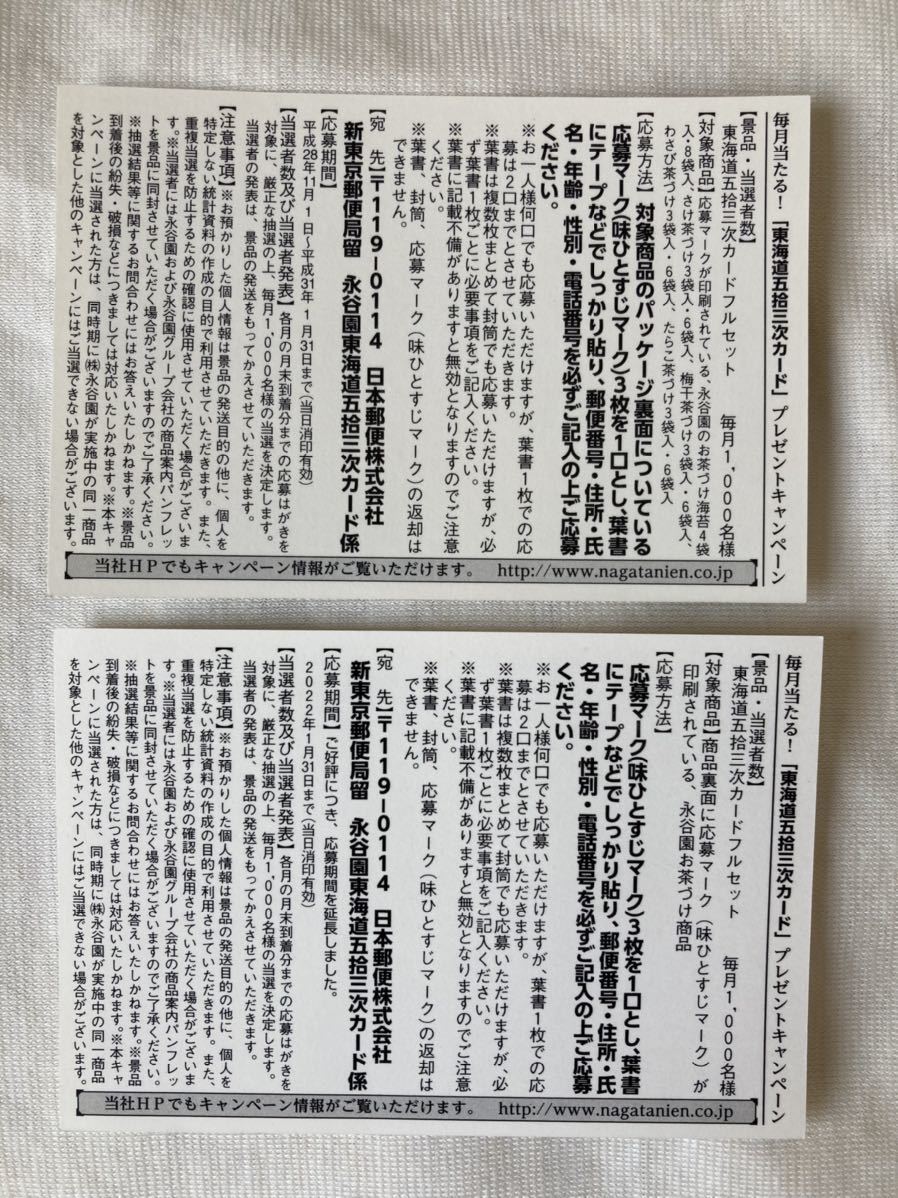 毎月当たる！「東海道五拾三次カード」プレゼントキャンペーン
【景品・当選者数】
東海道五拾三次カードフルセット　毎月1,000名様
【対象商品】応募マークが印刷されている、永谷園のお茶づけ海苔4袋
入・8袋入、さけ茶づけ3袋入・6袋入、梅干茶づけ3袋入・6袋入、
わさび茶づけ3袋入・6袋入、たらこ茶づけ3袋入・6袋入
【応募方法】対象商品のパッケージ裏面についている
応募マーク(味ひとすじマーク)3枚を1口とし、葉書
にテープなどでしっかり貼り、郵便番号・住所・氏
名・年齢・性別・電話番号を必ずご記入の上ご応募
ください。
※お一人様何口でも応募いただけますが、葉書1枚での応
募は2口までとさせていただきます。
※葉書は複数枚まとめて封筒でも応募いただけますが、必
ず葉書1枚ごとに必要事項をご記入ください。
※葉書に記載不備がありますと無効となりますのでご注意
ください。
※葉書、封筒、応募マーク（味ひとすじマーク）の返却は
できません。
【宛　先】〒119-0114　日本郵便株式会社
新東京郵便局留　永谷園東海道五拾三次カード係
【応募期間】
平成28年11月1日〜平成31年1月31日まで(当日消印有効)
【当選者数及び当選者発表】各月の月末到着分までの応募はがきを
対象に、厳正な抽選の上、毎月1,000名様の当選を決定します。
当選者の発表は、景品の発送をもってかえさせていただきます。
【注意事項】※お預かりした個人情報は景品の発送目的の他に、個人を
特定しない統計資料の作成の目的で利用させていただきます。また、
重複当選を防止するための確認に使用させていただく場合がございま
す。※当選者には永谷園および永谷園グループ会社の商品案内パンフレッ
トを景品に同封させていただく場合がございますのでご了承ください。
※抽選結果等に関するお問合わせにはお答えいたしかねます。※景品
到着後の紛失・破損などにつきましては対応いたしかねます。※本キャ
ンペーンに当選された方は、同時期に㈱永谷園が実施中の同一商品
を対象とした他のキャンペーンにはご当選できない場合がございます。
当社HPでもキャンペーン情報がご覧いただけます。 http://www.nagatanien.co.jp
毎月当たる！「東海道五拾三次カード」プレゼントキャンペーン
【景品・当選者数】
東海道五拾三次カードフルセット　毎月1,000名様
【対象商品】商品裏面に応募マーク（味ひとすじマーク）が
印刷されている、永谷園お茶づけ商品
【応募方法】
応募マーク(味ひとすじマーク)3枚を1口とし、葉書
にテープなどでしっかり貼り、郵便番号・住所・氏
名・年齢・性別・電話番号を必ずご記入の上ご応募
ください。
※お一人様何口でも応募いただけますが、葉書1枚での応
募は2口までとさせていただきます。
※葉書は複数枚まとめて封筒でも応募いただけますが、必
ず葉書1枚ごとに必要事項をご記入ください。
※葉書に記載不備がありますと無効となりますのでご注意
ください。
※葉書、封筒、応募マーク（味ひとすじマーク）の返却は
できません。
【宛　先】〒119-0114　日本郵便株式会社
新東京郵便局留　永谷園東海道五拾三次カード係
【応募期間】ご好評につき、応募期間を延長しました。
2022年1月31日まで(当日消印有効)
【当選者数及び当選者発表】各月の月末到着分までの応募はがきを
対象に、厳正な抽選の上、毎月1,000名様の当選を決定します。
当選者の発表は、景品の発送をもってかえさせていただきます。
【注意事項】※お預かりした個人情報は景品の発送目的の他に、個人を
特定しない統計資料の作成の目的で利用させていただきます。また、
重複当選を防止するための確認に使用させていただく場合がございま
す。※当選者には永谷園および永谷園グループ会社の商品案内パンフレッ
トを景品に同封させていただく場合がございますのでご了承ください。
※抽選結果等に関するお問合わせにはお答えいたしかねます。※景品
到着後の紛失・破損などにつきましては対応いたしかねます。※本キャ
ンペーンに当選された方は、同時期に㈱永谷園が実施中の同一商品
を対象とした他のキャンペーンにはご当選できない場合がございます。
当社HPでもキャンペーン情報がご覧いただけます。 http://www.nagatanien.co.jp